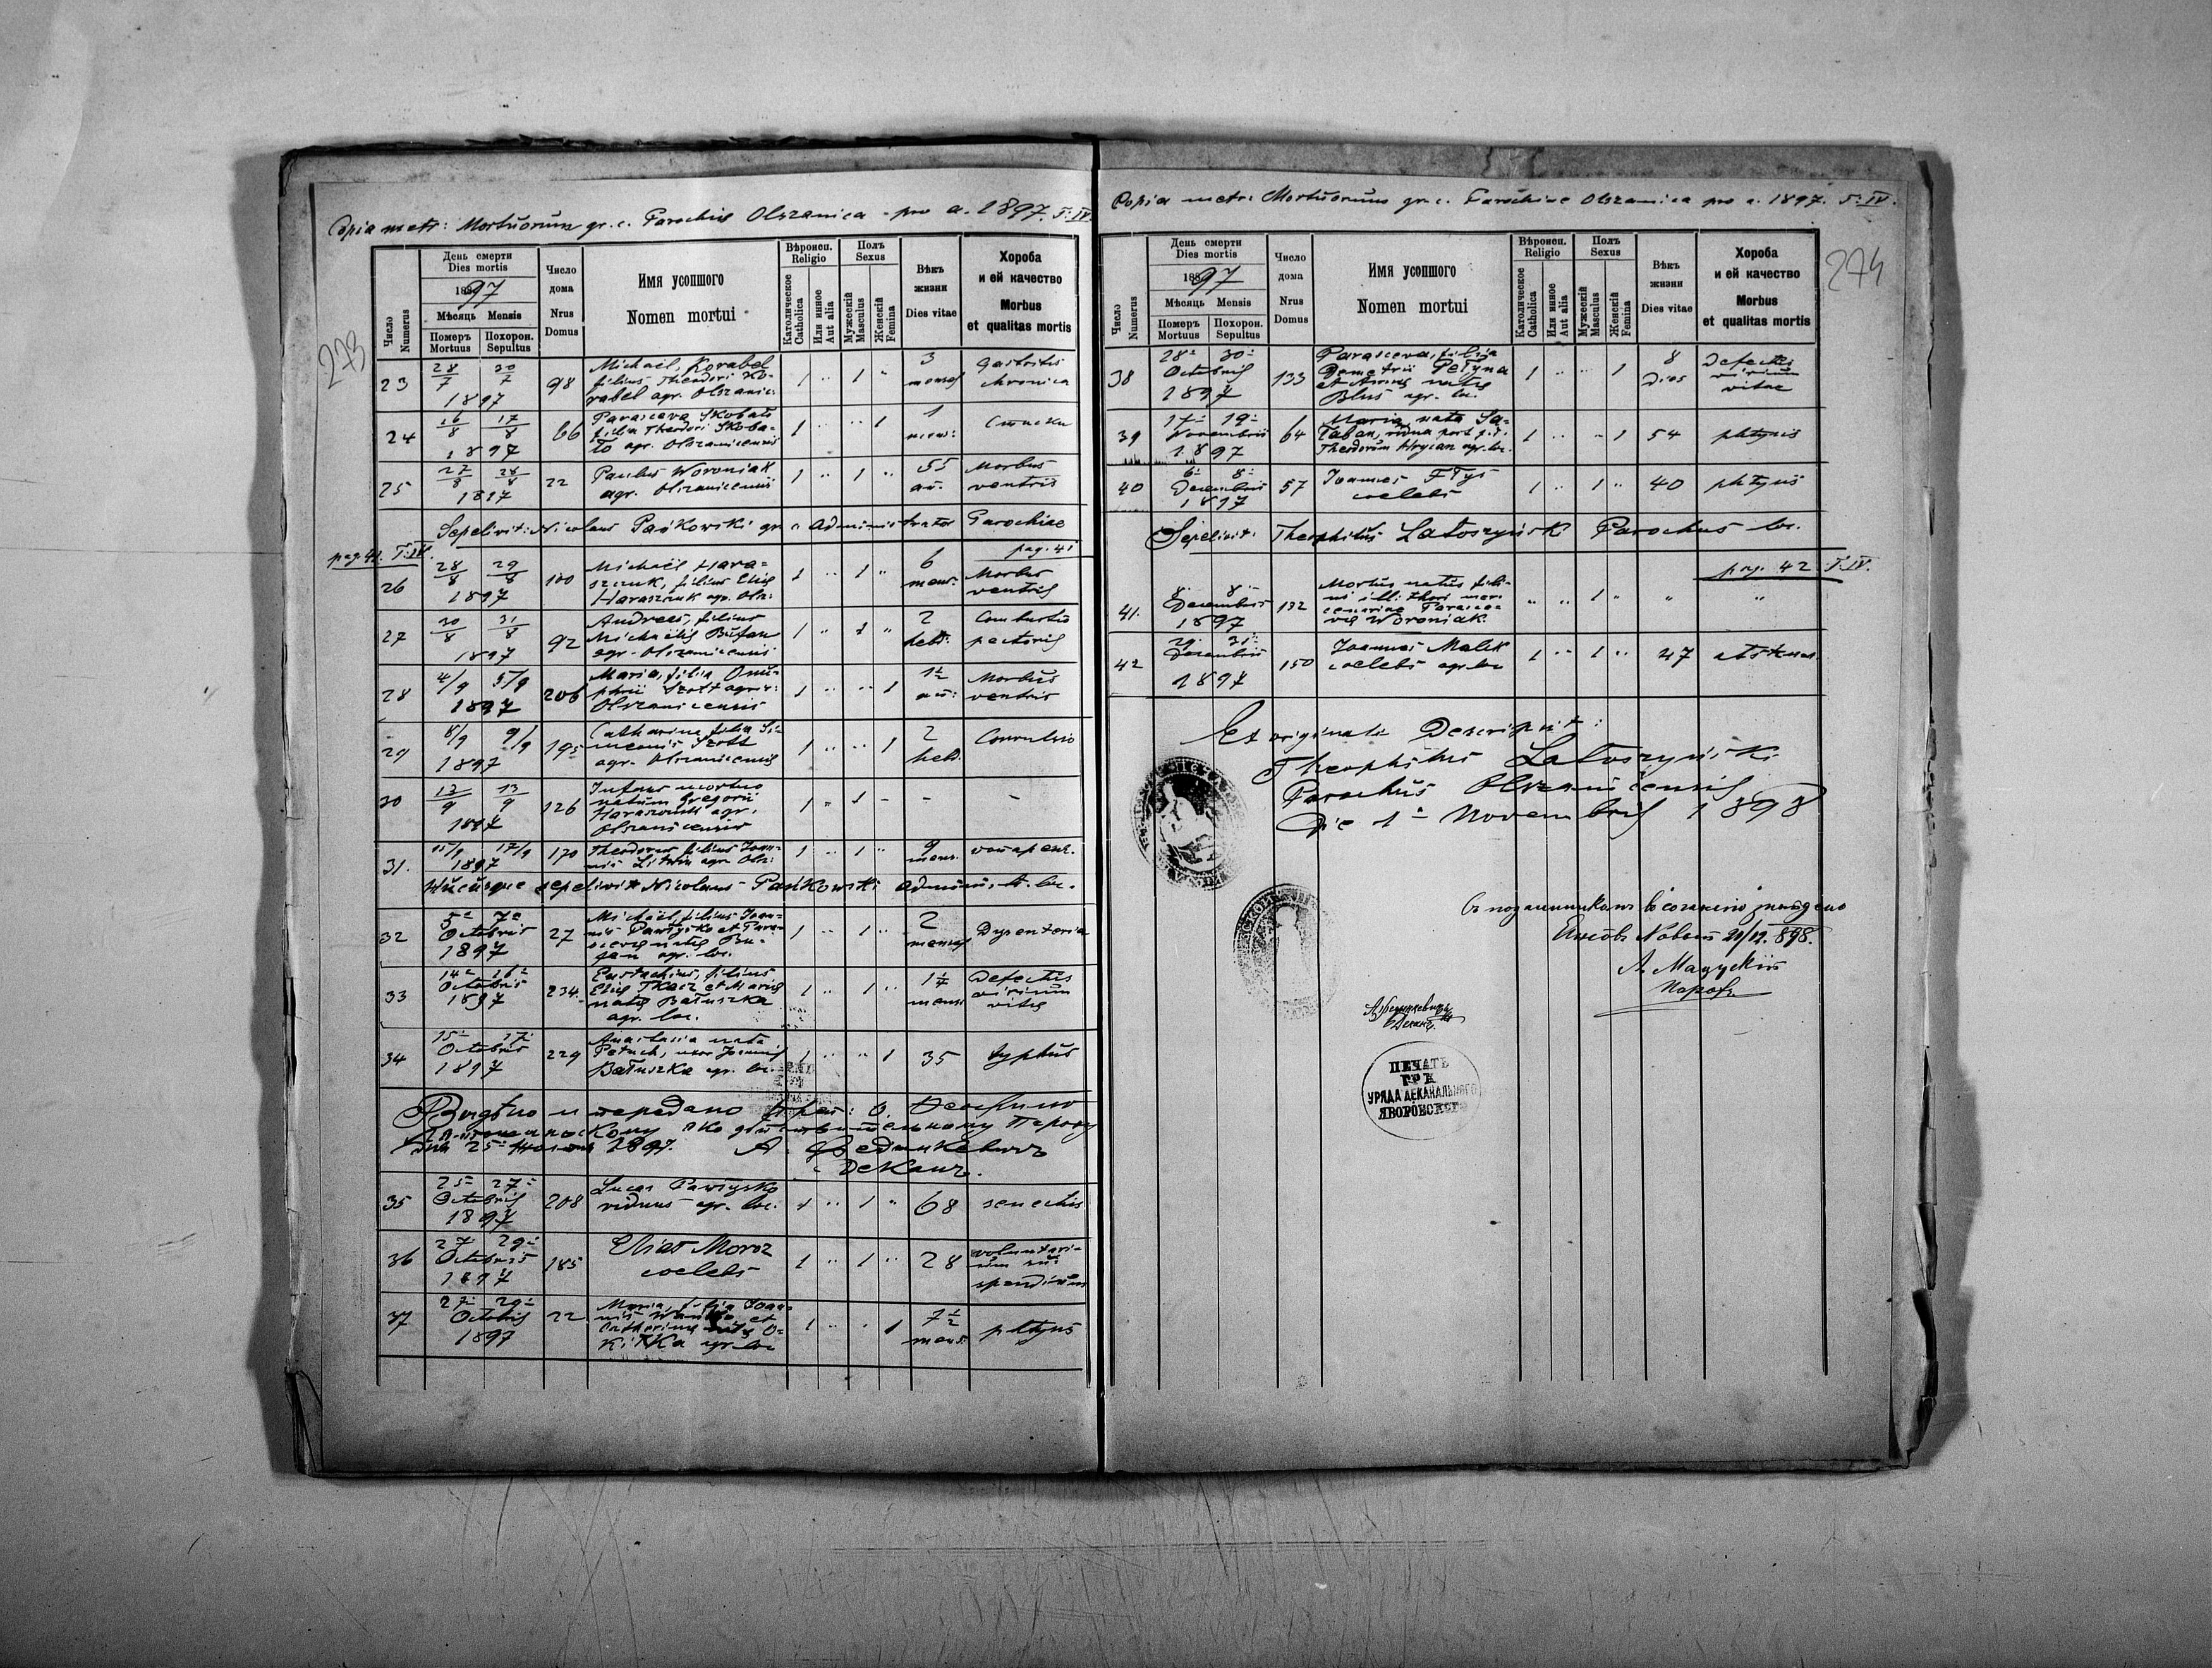 Copia metr: Mortuorum gr. c. Parochiae Olszanica pro a. 1897. T. IV
273
Число
Numerus
День смерти
Dies mortis
1897
Мѣсяць Mensis
Померъ
Mortuus
Похорон.
Sepultus
Число
дома
Nrus
Domus
Имя усопшого
Nomen mortui
Вѣроисп.
Religio
Католическое
Catholica
Или иное
Aut alia
Полъ
Sexus
Мужескій
Masculus
Женскій
Femina
Вѣкъ
жизни
Dies vitae
Хороба
и ей качество
Morbus
et qualitas mortis
23 28/7 30/7 1897 98
Michaël, Korabel
filius Theodori Ko-
rabel agr. Olszanic.
1 " 1 " 3 mens
Gastritis
chronica
24 16/8 17/8 1897 66
Parasceva Skobato
filia Theodori Skoba-
to agr. Olszanicensis
1 " " 1 1 mens:
25 27/8 28/8 1897 22
Paulus Woroniak
agr. Olszanicensis
1 " 1 " 55 an.
Morbus
ventris
Sepelivit: Nicolaus Pańkowski gr. c. Administrator Parochiae
pag. 41. T. IV.
pag. 41
26 28/8 29/8 1897 100
Michaël Hara=
szczuk, filius Eliae
Haraszczuk agr. Olsz:
1 " 1 " 6 mens.
Morbus
ventris
27 30/8 31/8 1897 92
Andreas, filius
Michaëlis Bufan
agr. Olszanicensis
1 " 1 " 2 hebd:
Combustio
pectoris
28 4/9 5/9 1897 206
Maria, filia Onu-
phrii Szott agr.
Olszanicensis
1 " " 1 1½ an:
Morbus
ventris
29 8/9 9/9 1897 195
Catharina filia Si-
meonis Szott
agr. Olszanicensis
1 " " 1 2 hebd.
Convulsio
30 12/9 13/9 1897 126
Infans mortuo
natum Gregorii
Haraszczuk agr.
Olszanicensis
1 " 1 - - -
31. 15/9 17/9 1897 170
Theodorus filius Joan-
nis Litwin agr. Olsz:
1 " 1 " 9 mens.
Hucusque sepelivit Nicolaus Pańkowski Administr. loc.
32 5a 7a Octobris 1897 27
Michaël, filius Joan-
nis Pawłysko et Para-
scevae natae Bu-
fan agr. loc.
1 " 1 " 2 mens
Dysenteria
33 14a 16a Octobris 1897 234
Eustachius, filius
Eliae Tkacz et Mariae
natae Batuszka
agr. loc.
1 " 1 " 1½ mens
Defectus
virium
vitae
34 15a 17a Octobris 1897 229
Anastasia nata
Petuch, uxor Joannis
Batuszka agr. loc.
1 " " 1 35 typhus
Видѣно и передано
дня 25 1897. А. Фединкевичъ
Деканъ.
35 25a 27a Octobris 1897 208
Lucas Pawłysko
viduus agr. loc.
1 " 1 " 68 senectus
36 27 29a Octobris 1897 185
Elias Moroz
coelebs
1 " 1 " 28
voluntari-
um su-
spendium
37 27a 29a Octobris 1897 22
Maria, filia Joan-
nis et
Catharinae natae O-
Kitka agr. loc
1 " " 1 7½ mens
phtysis
Copia metr: Mortuorum gr. c. Parochiae Olszanica pro a. 1897. T. IV.
274
Число
Numerus
День смерти
Dies mortis
1897
Мѣсяць Mensis
Померъ
Mortuus
Похорон.
Sepultus
Число
дома
Nrus
Domus
Имя усопшого
Nomen mortui
Вѣроисп.
Religio
Католическое
Catholica
Или иное
Aut alia
Полъ
Sexus
Мужескій
Masculus
Женскій
Femina
Вѣкъ
жизни
Dies vitae
Хороба
и ей качество
Morbus
et qualitas mortis
38 28a 30a Octobris 1897 133
Parasceva, filia
Demetrii Petyna
et Annae natae
Blus agr. loc.
1 " " 1 8 dies
Defectus
virium
vitae
39 17a 19a Novembris 1897 64
Maria nata Sa-
łaban, vidua post p. d.
Theodorum Hrycan agr. loc.
1 " " 1 54 phtysis
40 6a 8a Decembris 1897 57
Joannes Ftys
coelebs
1 " 1 " 40 phtysis
Sepelivit: Theophilus Latoszyński Parochus loc.
pag. 42 T. IV.
41. 8 8 Decembris 1897 132
Mortuus natus fili-
us illi: thori mer-
cenariae Parasce-
vae Woroniak
" " 1 " " "
42 29 31a Decembris 1897 150
Joannes Malik
coelebs agr. loc
1 " 1 " 47
Ex originali Descripsit:
Theophilus Latoszyński
Parochus Olszanicensis
Die 1a Novembris 1898
Съ подлинникомъ во согласіе
21/12. 898.
Парох
А. Фединкевичъ
Деканъ
ПЕЧАТЬ
ГР К
УРЯДА ДЕКАНАЛЬНОГО
ЯВОРÔВСКОГО